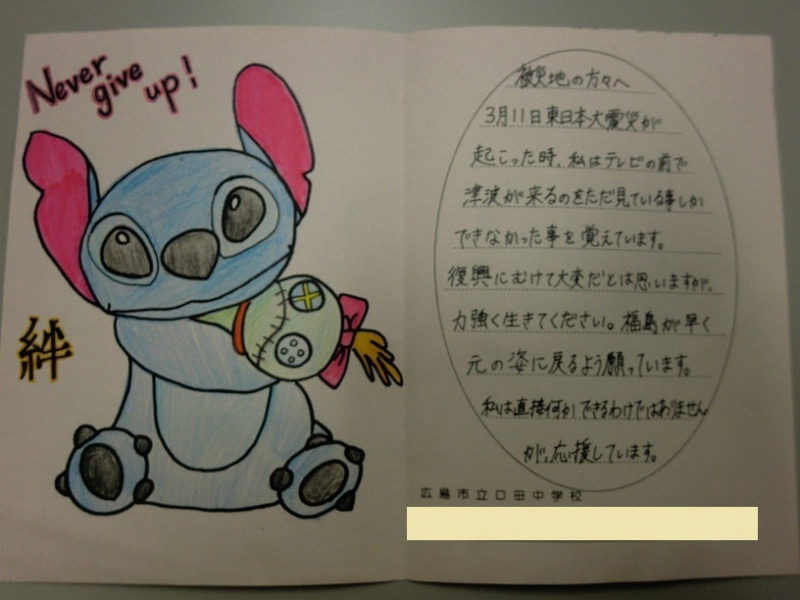 Never
give
up!
絆
被災地の方々へ
3月11日東日本大震災が
起こった時、私はテレビの前で
津波が来るのをただ見ている事しか
できなかった事を覚えています。
復興にむけて大変だとは思いますが、
力強く生きてください。福島が早く
元の姿に戻るよう願っています。
私は直接何かできるわけではありません
が、応援しています。
広島市立口田中学校